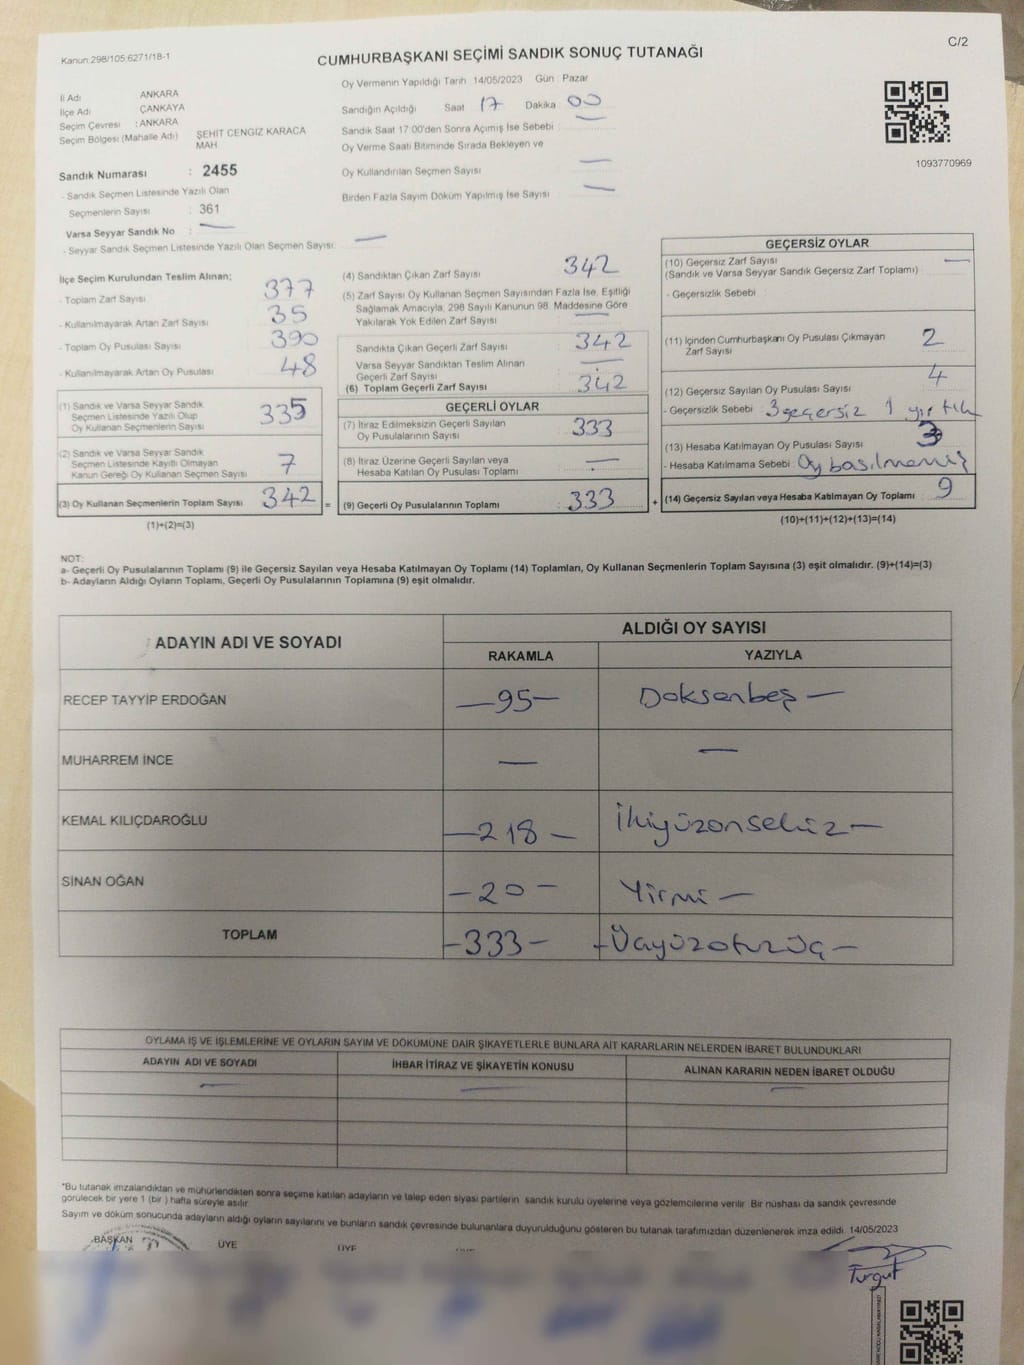 C/2
Kanun:298/105;6271/18-1
CUMHURBAŞKANI SEÇİMİ SANDIK SONUÇ TUTANAĞI
Oy Vermenin Yapıldığı Tarih 14/05/2023 Gün : Pazar
İl Adı ANKARA
İlçe Adı ÇANKAYA
Seçim Çevresi : ANKARA
Seçim Bölgesi (Mahalle Adı) ŞEHİT CENGİZ KARACA
MAH
Sandık Numarası : 2455
- Sandık Seçmen Listesinde Yazılı Olan
Seçmenlerin Sayısı : 361
Varsa Seyyar Sandık No : —
- Seyyar Sandık Seçmen Listesinde Yazılı Olan Seçmen Sayısı: —
Sandığın Açıldığı Saat 17 Dakika : 00
Sandık Saat 17:00'den Sonra Açımış İse Sebebi : —
Oy Verme Saati Bitiminde Sırada Bekleyen ve
Oy Kullandırılan Seçmen Sayısı —
Birden Fazla Sayım Döküm Yapılmış İse Sayısı —
1093770969
İlçe Seçim Kurulundan Teslim Alınan;
- Toplam Zarf Sayısı 377
- Kullanılmayarak Artan Zarf Sayısı 35
- Toplam Oy Pusulası Sayısı 390
- Kullanılmayarak Artan Oy Pusulası 48
(1) Sandık ve Varsa Seyyar Sandık
Seçmen Listesinde Yazılı Olup
Oy Kullanan Seçmenlerin Sayısı 335
(2) Sandık ve Varsa Seyyar Sandık
Seçmen Listesinde Kayıtlı Olmayan
Kanun Gereği Oy Kullanan Seçmen Sayısı 7
(3) Oy Kullanan Seçmenlerin Toplam Sayısı 342 =
(1)+(2)=(3)
(4) Sandıktan Çıkan Zarf Sayısı 342
(5) Zarf Sayısı Oy Kullanan Seçmen Sayısından Fazla İse, Eşitliği
Sağlamak Amacıyla, 298 Sayılı Kanunun 98. Maddesine Göre
Yakılarak Yok Edilen Zarf Sayısı —
Sandıkta Çıkan Geçerli Zarf Sayısı 342
Varsa Seyyar Sandıktan Teslim Alınan
Geçerli Zarf Sayısı —
(6) Toplam Geçerli Zarf Sayısı 342
GEÇERLİ OYLAR
(7) İtiraz Edilmeksizin Geçerli Sayılan
Oy Pusulalarının Sayısı 333
(8) İtiraz Üzerine Geçerli Sayılan veya
Hesaba Katılan Oy Pusulası Toplamı —
(9) Geçerli Oy Pusulalarının Toplamı : 333 +
GEÇERSİZ OYLAR
(10) Geçersiz Zarf Sayısı —
(Sandık ve Varsa Seyyar Sandık Geçersiz Zarf Toplamı)
- Geçersizlik Sebebi :
(11) İçinden Cumhurbaşkanı Oy Pusulası Çıkmayan
Zarf Sayısı 2
(12) Geçersiz Sayılan Oy Pusulası Sayısı 4
- Geçersizlik Sebebi : 3 geçersiz 1 yırtık
(13) Hesaba Katılmayan Oy Pusulası Sayısı 3
- Hesaba Katılmama Sebebi : Oy basılmamış
(14) Geçersiz Sayılan veya Hesaba Katılmayan Oy Toplamı : 9
(10)+(11)+(12)+(13)=(14)
NOT:
a- Geçerli Oy Pusulalarının Toplamı (9) ile Geçersiz Sayılan veya Hesaba Katılmayan Oy Toplamı (14) Toplamları, Oy Kullanan Seçmenlerin Toplam Sayısına (3) eşit olmalıdır. (9)+(14)=(3)
b- Adayların Aldığı Oyların Toplamı, Geçerli Oy Pusulalarının Toplamına (9) eşit olmalıdır.
ADAYIN ADI VE SOYADI
ALDIĞI OY SAYISI
RAKAMLA YAZIYLA
RECEP TAYYİP ERDOĞAN —95— Doksanbeş —
MUHARREM İNCE — —
KEMAL KILIÇDAROĞLU —218— İkiyüzonsekiz —
SİNAN OĞAN —20— Yirmi —
TOPLAM —333— —Üçyüzotuzüç —
OYLAMA İŞ VE İŞLEMLERİNE VE OYLARIN SAYIM VE DÖKÜMÜNE DAİR ŞİKAYETLERLE BUNLARA AİT KARARLARIN NELERDEN İBARET BULUNDUKLARI
ADAYIN ADI VE SOYADI İHBAR İTİRAZ VE ŞİKAYETİN KONUSU ALINAN KARARIN NEDEN İBARET OLDUĞU
— — —
*Bu tutanak imzalandıktan ve mühürlendikten sonra seçime katılan adayların ve talep eden siyasi partilerin sandık kurulu üyelerine veya gözlemcilerine verilir. Bir nüshası da sandık çevresinde
görülecek bir yere 1 (bir ) hafta süreyle asılır.
Sayım ve döküm sonucunda adayların aldığı oyların sayılarını ve bunların sandık çevresinde bulunanlara duyurulduğunu gösteren bu tutanak tarafımızdan düzenlenerek imza edildi. 14/05/2023
BAŞKAN ÜYE ÜYE
Turgut